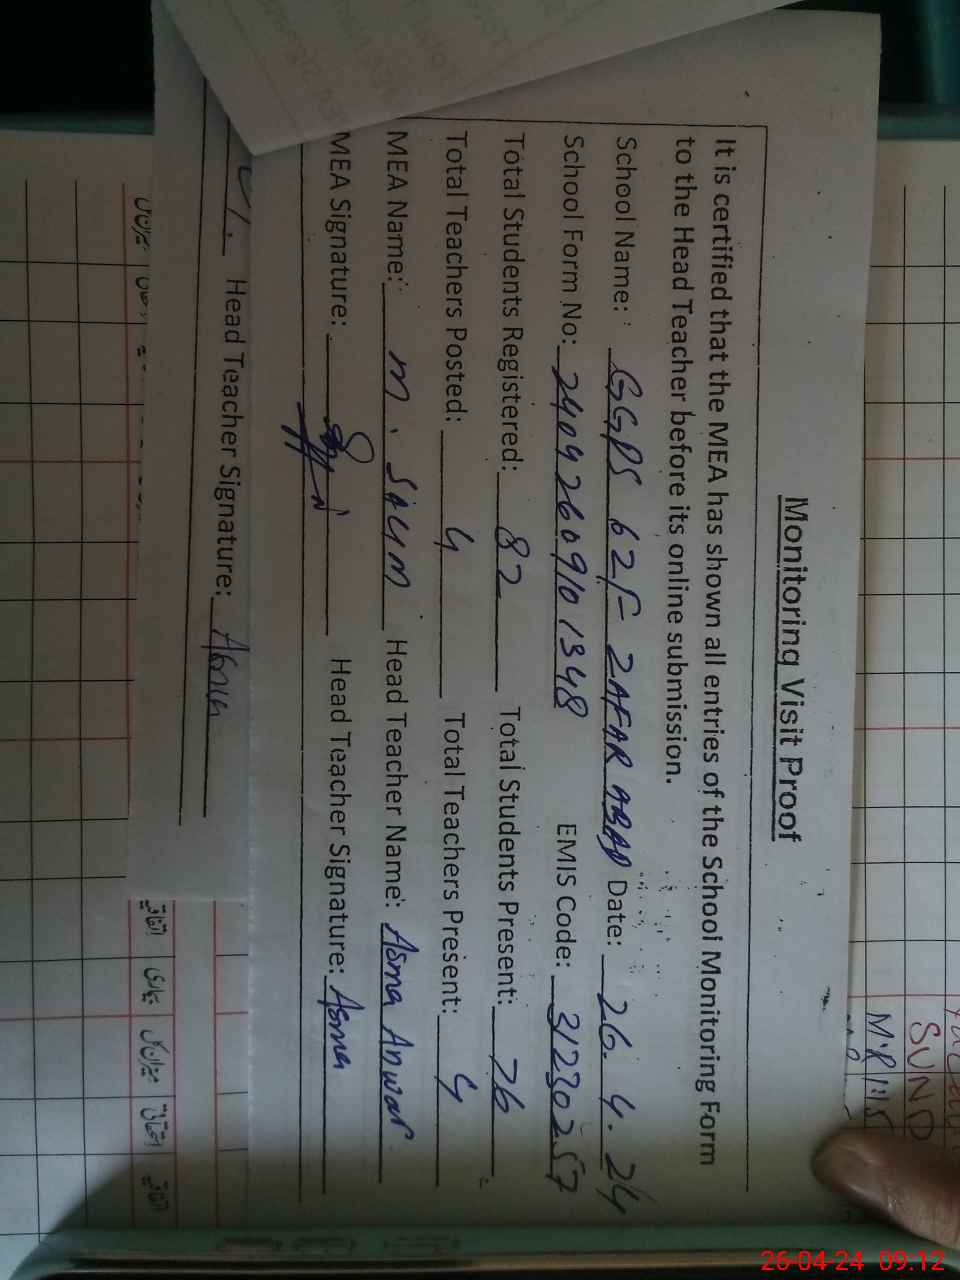 Monitoring Visit Proof
It is certified that the MEA has shown all entries of the School Monitoring Form
to the Head Teacher before its online submission.
School Name: GGPS 62F ZAFAR ABAD Date: 26.4.24
School Form No: 2409260910 1348 EMIS Code: 31230257
Total Students Registered: 82 Total Students Present: 76
Total Teachers Posted: 4 Total Teachers Present: 4
MEA Name: M. SALIM Head Teacher Name: Asma Anwar
MEA Signature: Head Teacher Signature: Asma
Head Teacher Signature: Asma
SUND
اتفاقیہ بیماری میزان کل استحقاق اتفاقیہ
26-04-24 09:12